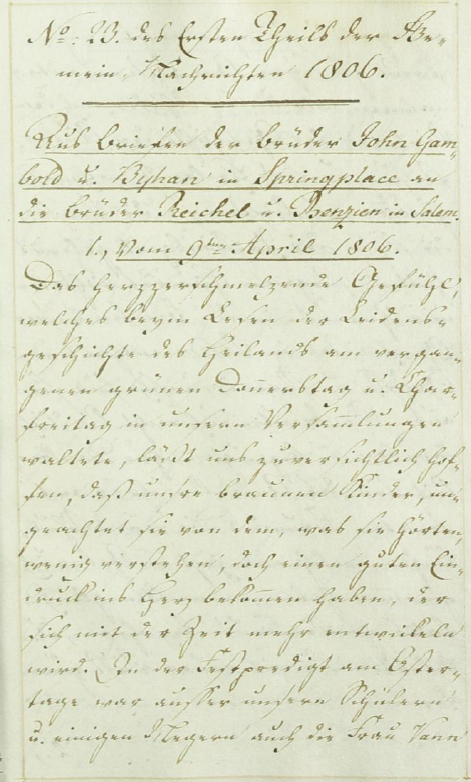 No: 23. des Ersten Theils der Ge-
mein-Nachrichten 1806.
Aus Briefen der Brüder John Gam-
bold u. Byhan in Springplace an
die Brüder Reichel u. Benzien in Salem.
1., Vom 9ten April 1806.
Das herzzerschmelzende Gefühl,
welches beym Lesen der Leidens-
geschichte des Heilands am vergan-
genen grünen Donnerstag u. Char-
freitag in unsern Versammlungen
waltete, läßt uns zuversichtlich hof-
fen, daß unsre braunen Kinder, un-
geachtet sie von dem, was sie hörten,
wenig verstehen, doch einen guten Ein-
druck ins Herz bekommen haben, der
sich mit der Zeit mehr entwickeln
wird. In der Festpredigt am Oster-
tage war ausser unsern Schülern
u. einigen Negern auch die Frau Vann